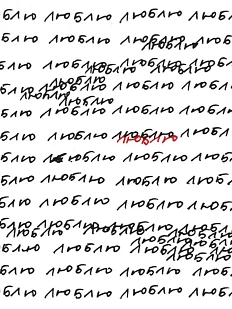 люблю люблю люблю люблю
люблю люблю люблю люблю
люблю
люблю люблю люблю люблю
люблю люблю
люблю люблю люблю люблю
люблю
люблю люблю
люблю люблю люблю люблю
люблю люблю люблю люблю
люблю
люблю люблю люблю люблю
люблю люблю люблю люблю
люблю люблю люблю люблю
люблю люблю люблю люблю
люблю люблю люблю
люблю
люблю люблю люблю люблю
люблю
люблю люблю люблю люблю
люблю люблю люблю люблю